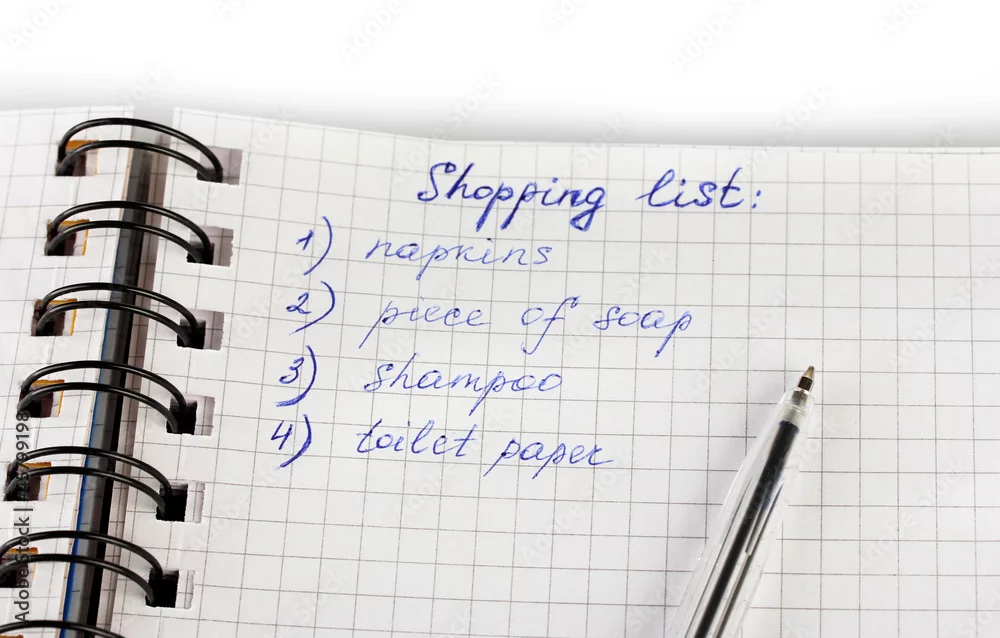 Shopping list:
1) napkins
2) piece of soap
3) shampoo
4) toilet paper